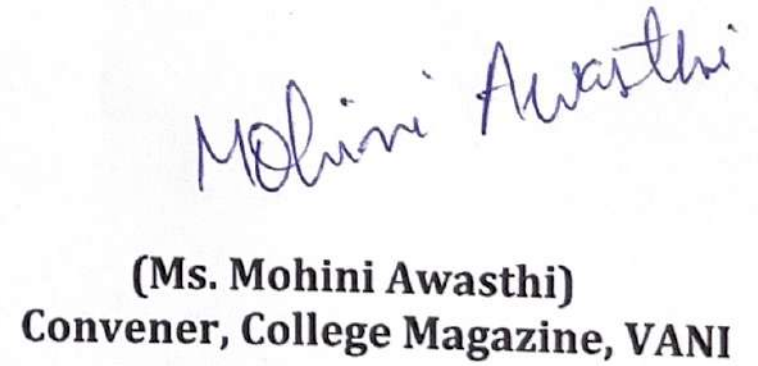 Mohini Awasthi
(Ms. Mohini Awasthi)
Convener, College Magazine, VANI